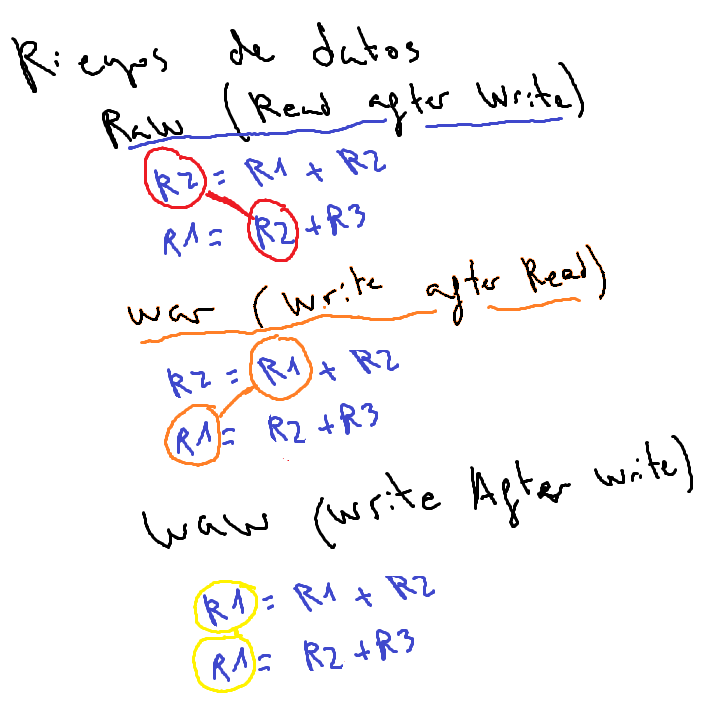 Riegos de datos
Raw (Read after Write)
R2 = R1 + R2
R1 = R2 + R3
war (Write after Read)
R2 = R1 + R2
R1 = R2 + R3
waw (write After write)
R1 = R1 + R2
R1 = R2 + R3